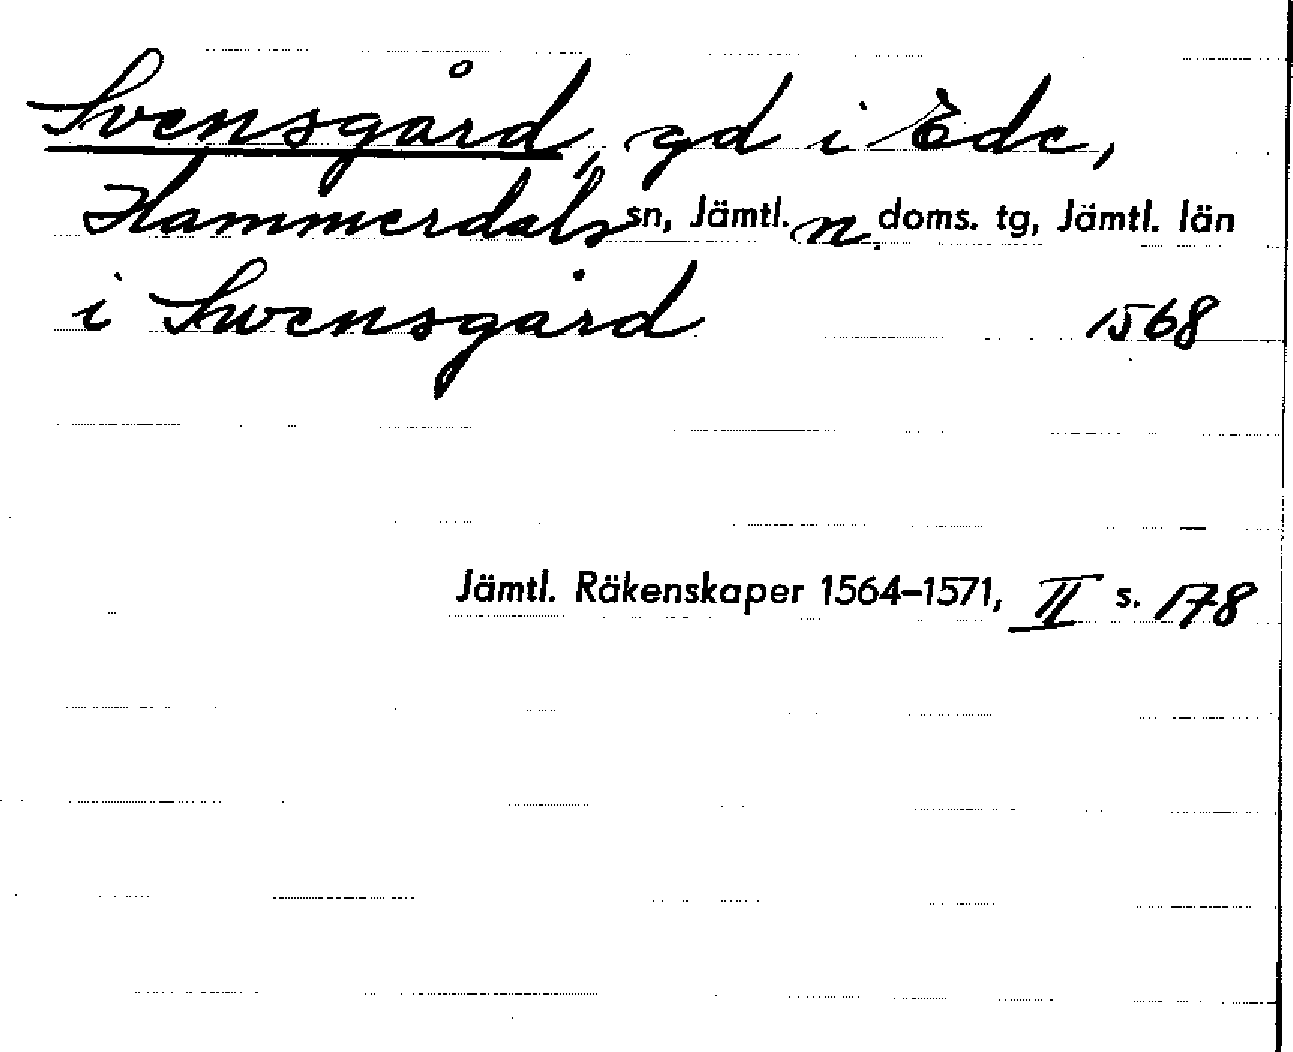 Svensgård, gd i Ede,
Hammerdals sn, Jämtl. n. doms. tg, Jämtl. län
i Swensgård 1568
Jämtl. Räkenskaper 1564–1571, II s. 178